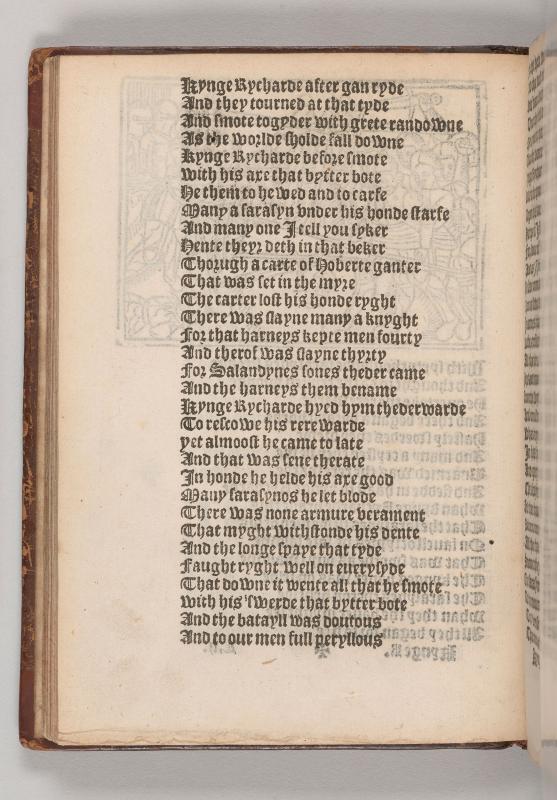 Kynge Rycharde after gan ryde
And they tourned at that tyde
And smote togyder with grete randowne
As the worlde sholde fall downe
Kynge Rycharde before smote
With his axe that bytter bote
He them to hewed and to carfe
Many a sarasyn vnder his honde starfe
And many one J tell you syker
Hente theyr deth in that beker
Thorugh a carte of Hoberte ganter
That was set in the myre
The carter lost his honde ryght
There was slayne many a knyght
For that harneys kepte men fourty
And therof was slayne thyrty
For Salandynes sones theder came
And the harneys them bename
Kynge Rycharde hyed hym thederwarde
To rescowe his rerewarde
yet almoost he came to late
And that was sene therate
Jn honde he helde his axe good
Many sarasynos he let blode
There was none armure verament
That myght withstonde his dente
And the longe spaye that tyde
Faught ryght well on euerysyde
That downe it wente all that he smote
With his swerde that bytter bote
And the batayll was doutous
And to our men full peryllous